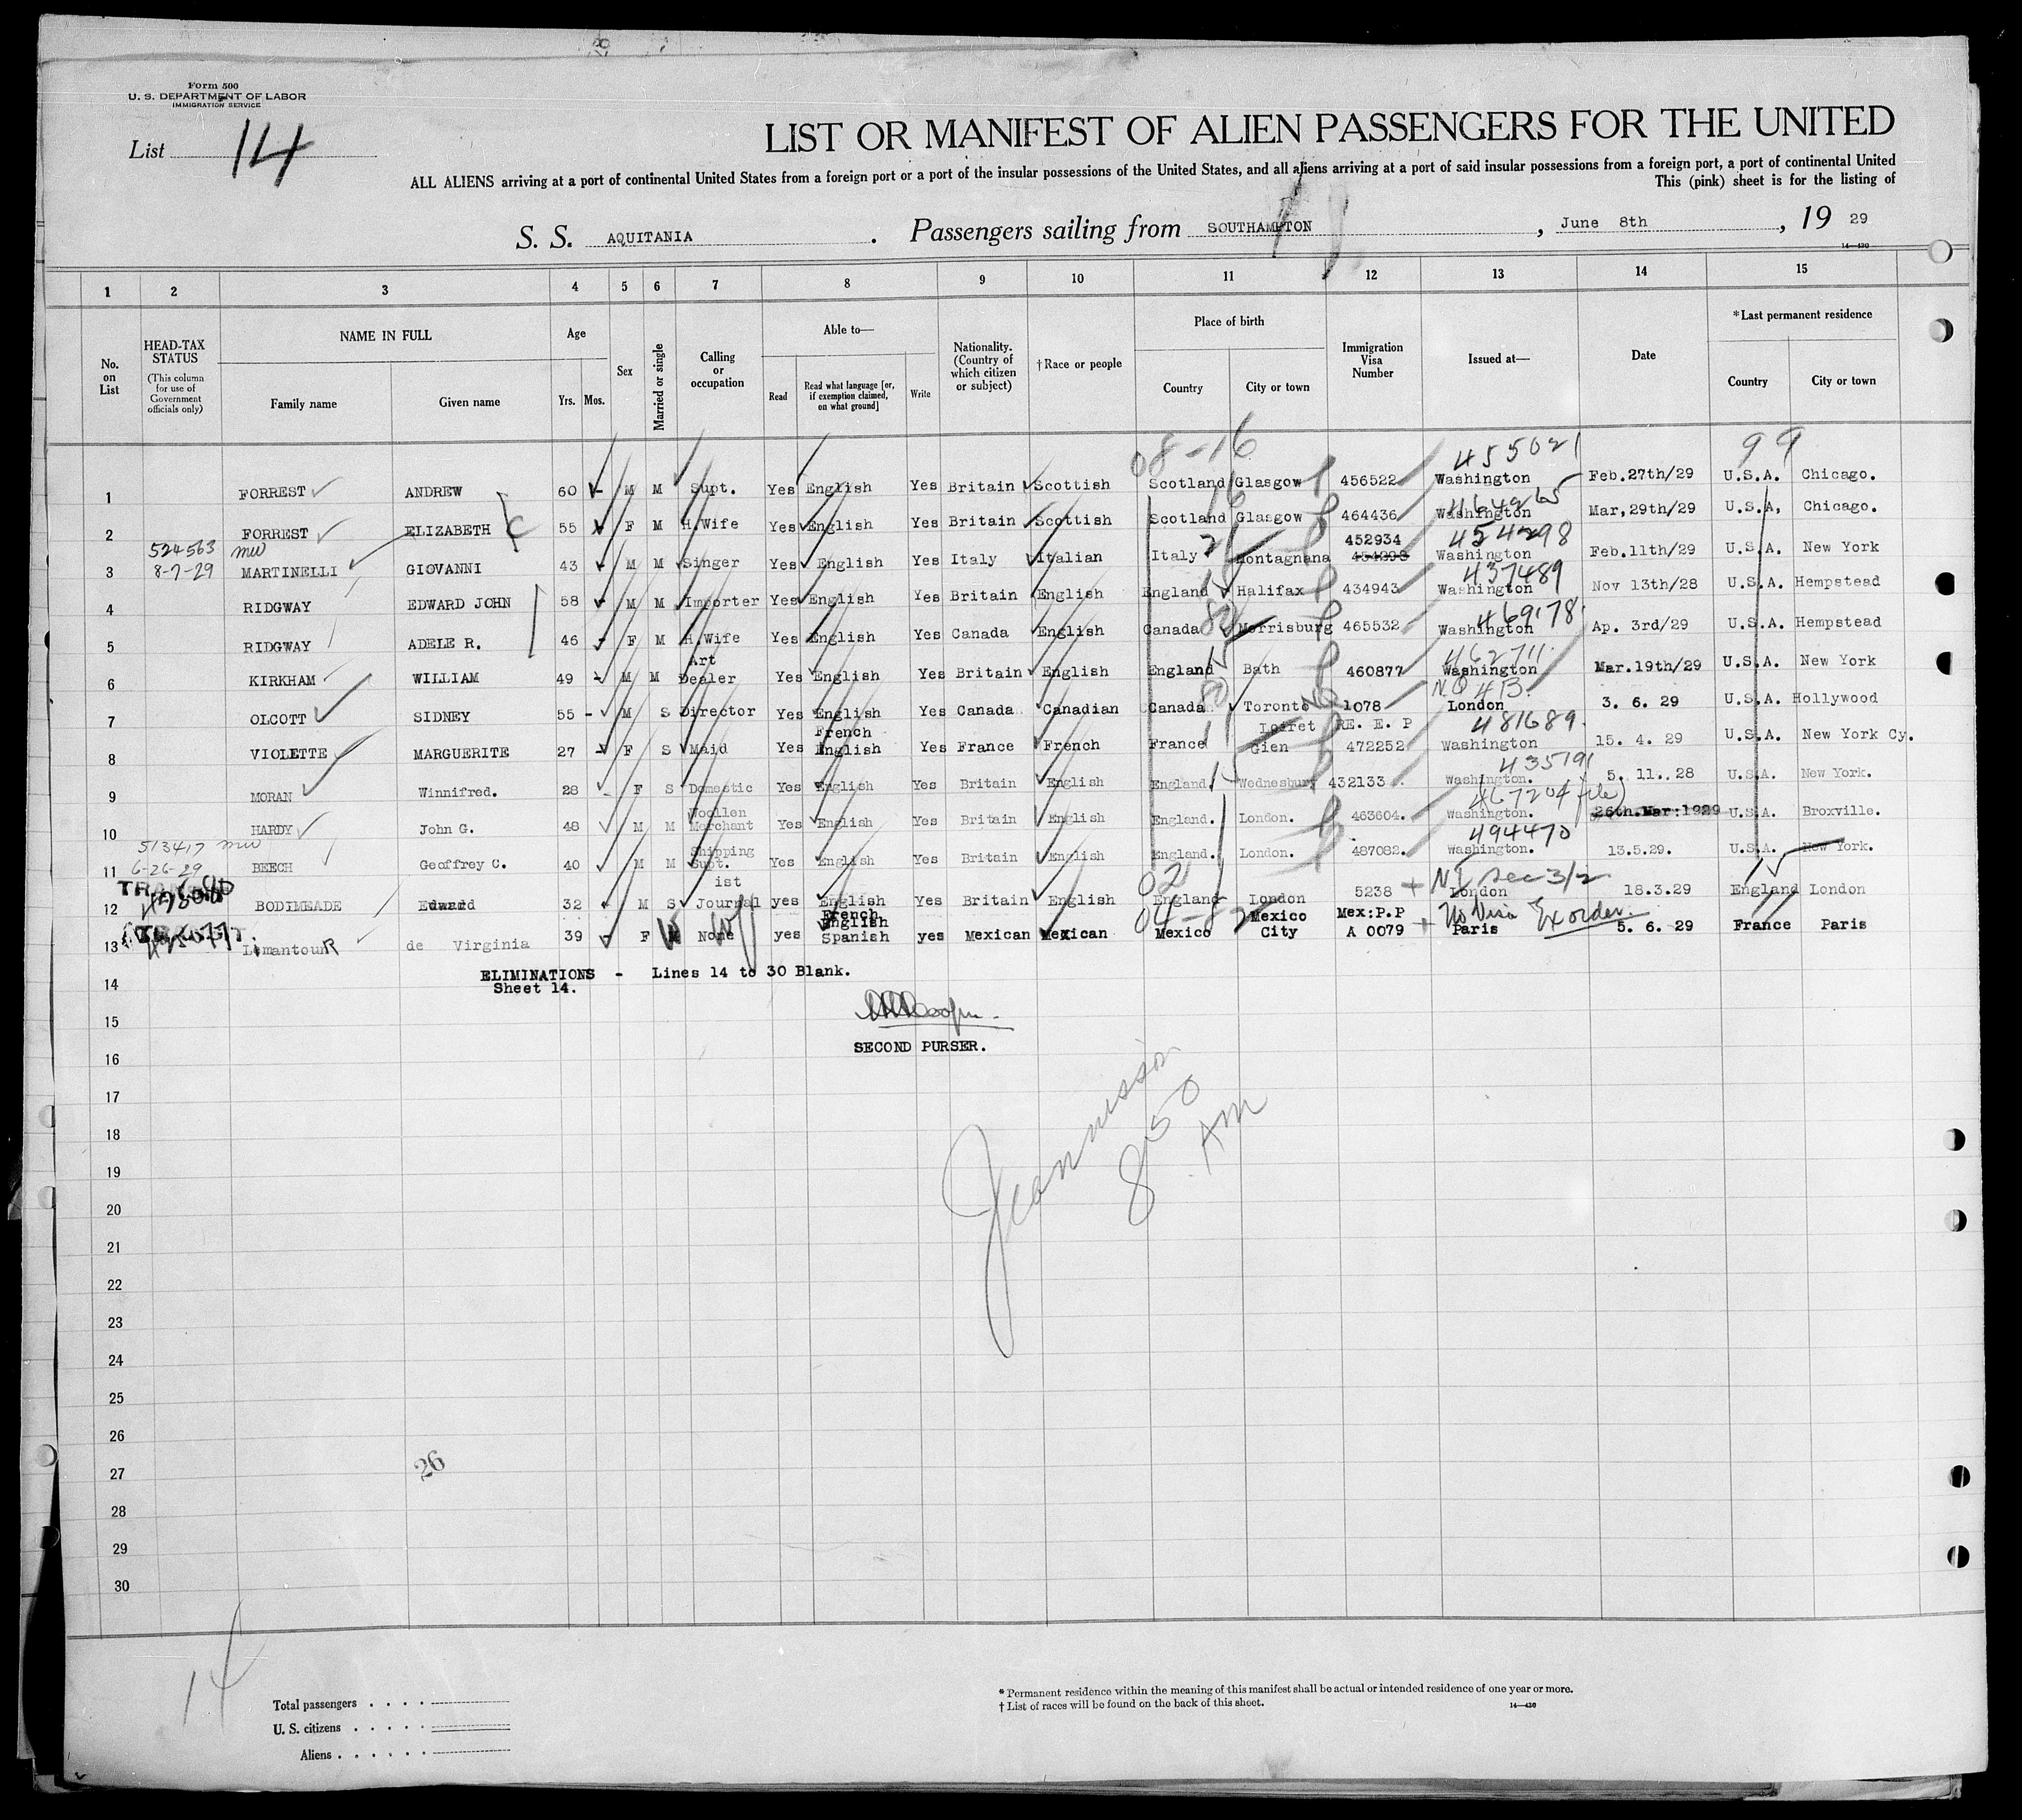 Form 500
U. S. DEPARTMENT OF LABOR
IMMIGRATION SERVICE
List 14
LIST OR MANIFEST OF ALIEN PASSENGERS FOR THE UNITED
ALL ALIENS arriving at a port of continental United States from a foreign port or a port of the insular possessions of the United States, and all aliens arriving at a port of said insular possessions from a foreign port, a port of continental United
This (pink) sheet is for the listing of
S. S. AQUITANIA . Passengers sailing from SOUTHAMPTON , June 8th , 19 29
14—430
1 2 3 4 5 6 7 8 9 10 11 12 13 14 15
No. on List
HEAD-TAX STATUS (This column for use of Government officials only)
NAME IN FULL
Family name Given name
Age
Yrs. Mos.
Sex
Married or single
Calling or occupation
Able to—
Read Read what language [or, if exemption claimed, on what ground] Write
Nationality. (Country of which citizen or subject)
†Race or people
Place of birth
Country City or town
Immigration Visa Number
Issued at—
Date
*Last permanent residence
Country City or town
08-16 455021 99
1 FORREST ANDREW 60 M M Supt. Yes English Yes Britain Scottish Scotland Glasgow 456522 Washington Feb.27th/29 U.S.A. Chicago.
2 FORREST ELIZABETH 55 F M H.Wife Yes English Yes Britain Scottish Scotland Glasgow 464436 Washington Mar,29th/29 U.S.A, Chicago.
524563 mw 452934 454298
3 8-7-29 MARTINELLI GIOVANNI 43 M M Singer Yes English Yes Italy Italian Italy Montagnana 454298 Washington Feb.11th/29 U.S.A. New York
437489
4 RIDGWAY EDWARD JOHN 58 M M Importer Yes English Yes Britain English England Halifax 434943 Washington Nov 13th/28 U.S.A. Hempstead
469178
5 RIDGWAY ADELE R. 46 F M H.Wife Yes English Yes Canada English Canada Morrisburg 465532 Washington Ap. 3rd/29 U.S.A. Hempstead
462711
6 KIRKHAM WILLIAM 49 M M Art Dealer Yes English Yes Britain English England Bath 460877 Washington Mar.19th/29 U.S.A. New York
N.Q 413.
7 OLCOTT SIDNEY 55 - M S Director Yes English Yes Canada Canadian Canada Toronto 1078 London 3. 6. 29 U.S.A. Hollywood
French Loiret RE. E. P 481689
8 VIOLETTE MARGUERITE 27 F S Maid Yes English Yes France French France Gien 472252 Washington 15. 4. 29 U.S.A. New York Cy.
435191
9 MORAN Winnifred. 28 F S Domestic Yes English Yes Britain English England. Wednesbury 432133. Washington. 5. 11. 28 U.S.A. New York.
467204 file)
10 HARDY John G. 48 M M Woollen Merchant Yes English Yes Britain English England. London. 463604. Washington. 26th.Mar:1929 U.S.A. Broxville.
513417 mw 494470
11 6-26-29 BEECH Geoffrey C. 40 M M Shipping Supt. Yes English Yes Britain English England. London. 487082. Washington. 13.5.29. U.S.A. New York.
02 NI Sec 3/2
12 BODIMEADE Edward 32 M S Journalist yes English Yes Britain English England London 5238 London 18.3.29 England London
04-82 No Visa Ex order.
13 LimantouR de Virginia 39 F None yes French English Spanish yes Mexican Mexican Mexico Mexico City Mex:P.P A 0079 Paris 5. 6. 29 France Paris
14 ELIMINATIONS - Lines 14 to 30 Blank.
Sheet 14.
15
SECOND PURSER.
16
17
18
19
20
21
22
23
24
25
26
27
28
29
30
8 50 AM
26
14
Total passengers
U. S. citizens
Aliens
* Permanent residence within the meaning of this manifest shall be actual or intended residence of one year or more.
† List of races will be found on the back of this sheet.
14—430